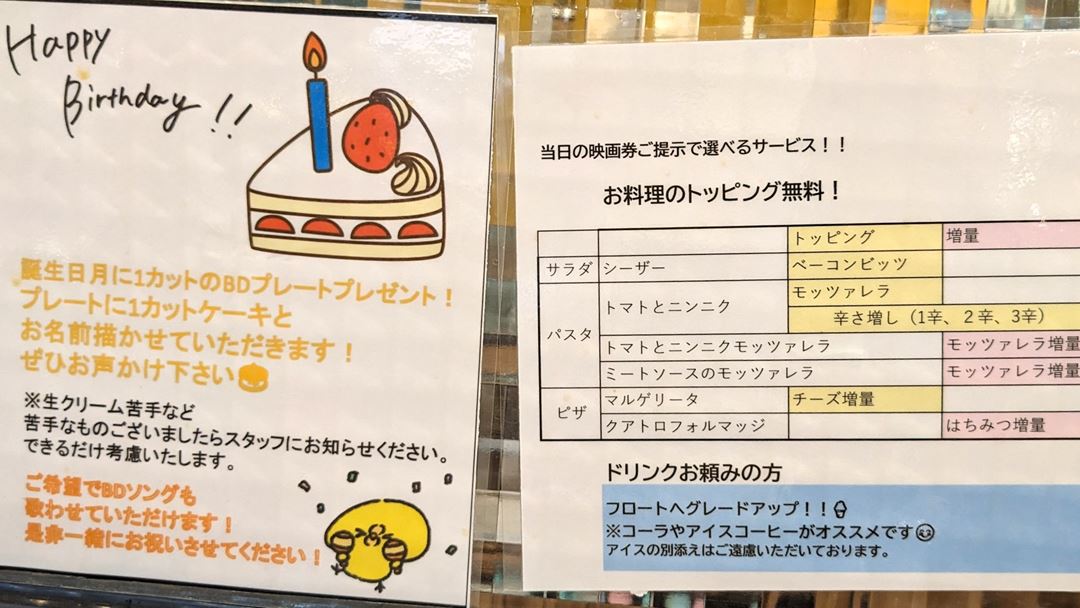 Happy
Birthday !!
誕生日月に1カットのBDプレートプレゼント！
プレートに1カットケーキと
お名前描かせていただきます！
ぜひお声かけ下さい🎃
※生クリーム苦手など
苦手なものございましたらスタッフにお知らせください。
できるだけ考慮いたします。
ご希望でBDソングも
歌わせていただけます！
是非一緒にお祝いさせてください！
当日の映画券ご提示で選べるサービス！！
お料理のトッピング無料！
トッピング 増量
サラダ シーザー ベーコンビッツ
パスタ トマトとニンニク モッツァレラ
辛さ増し（1辛、2辛、3辛）
トマトとニンニクモッツァレラ モッツァレラ増量
ミートソースのモッツァレラ モッツァレラ増量
ピザ マルゲリータ チーズ増量
クアトロフォルマッジ はちみつ増量
ドリンクお頼みの方
フロートへグレードアップ！！🍦
※コーラやアイスコーヒーがオススメです😊
アイスの別添えはご遠慮いただいております。